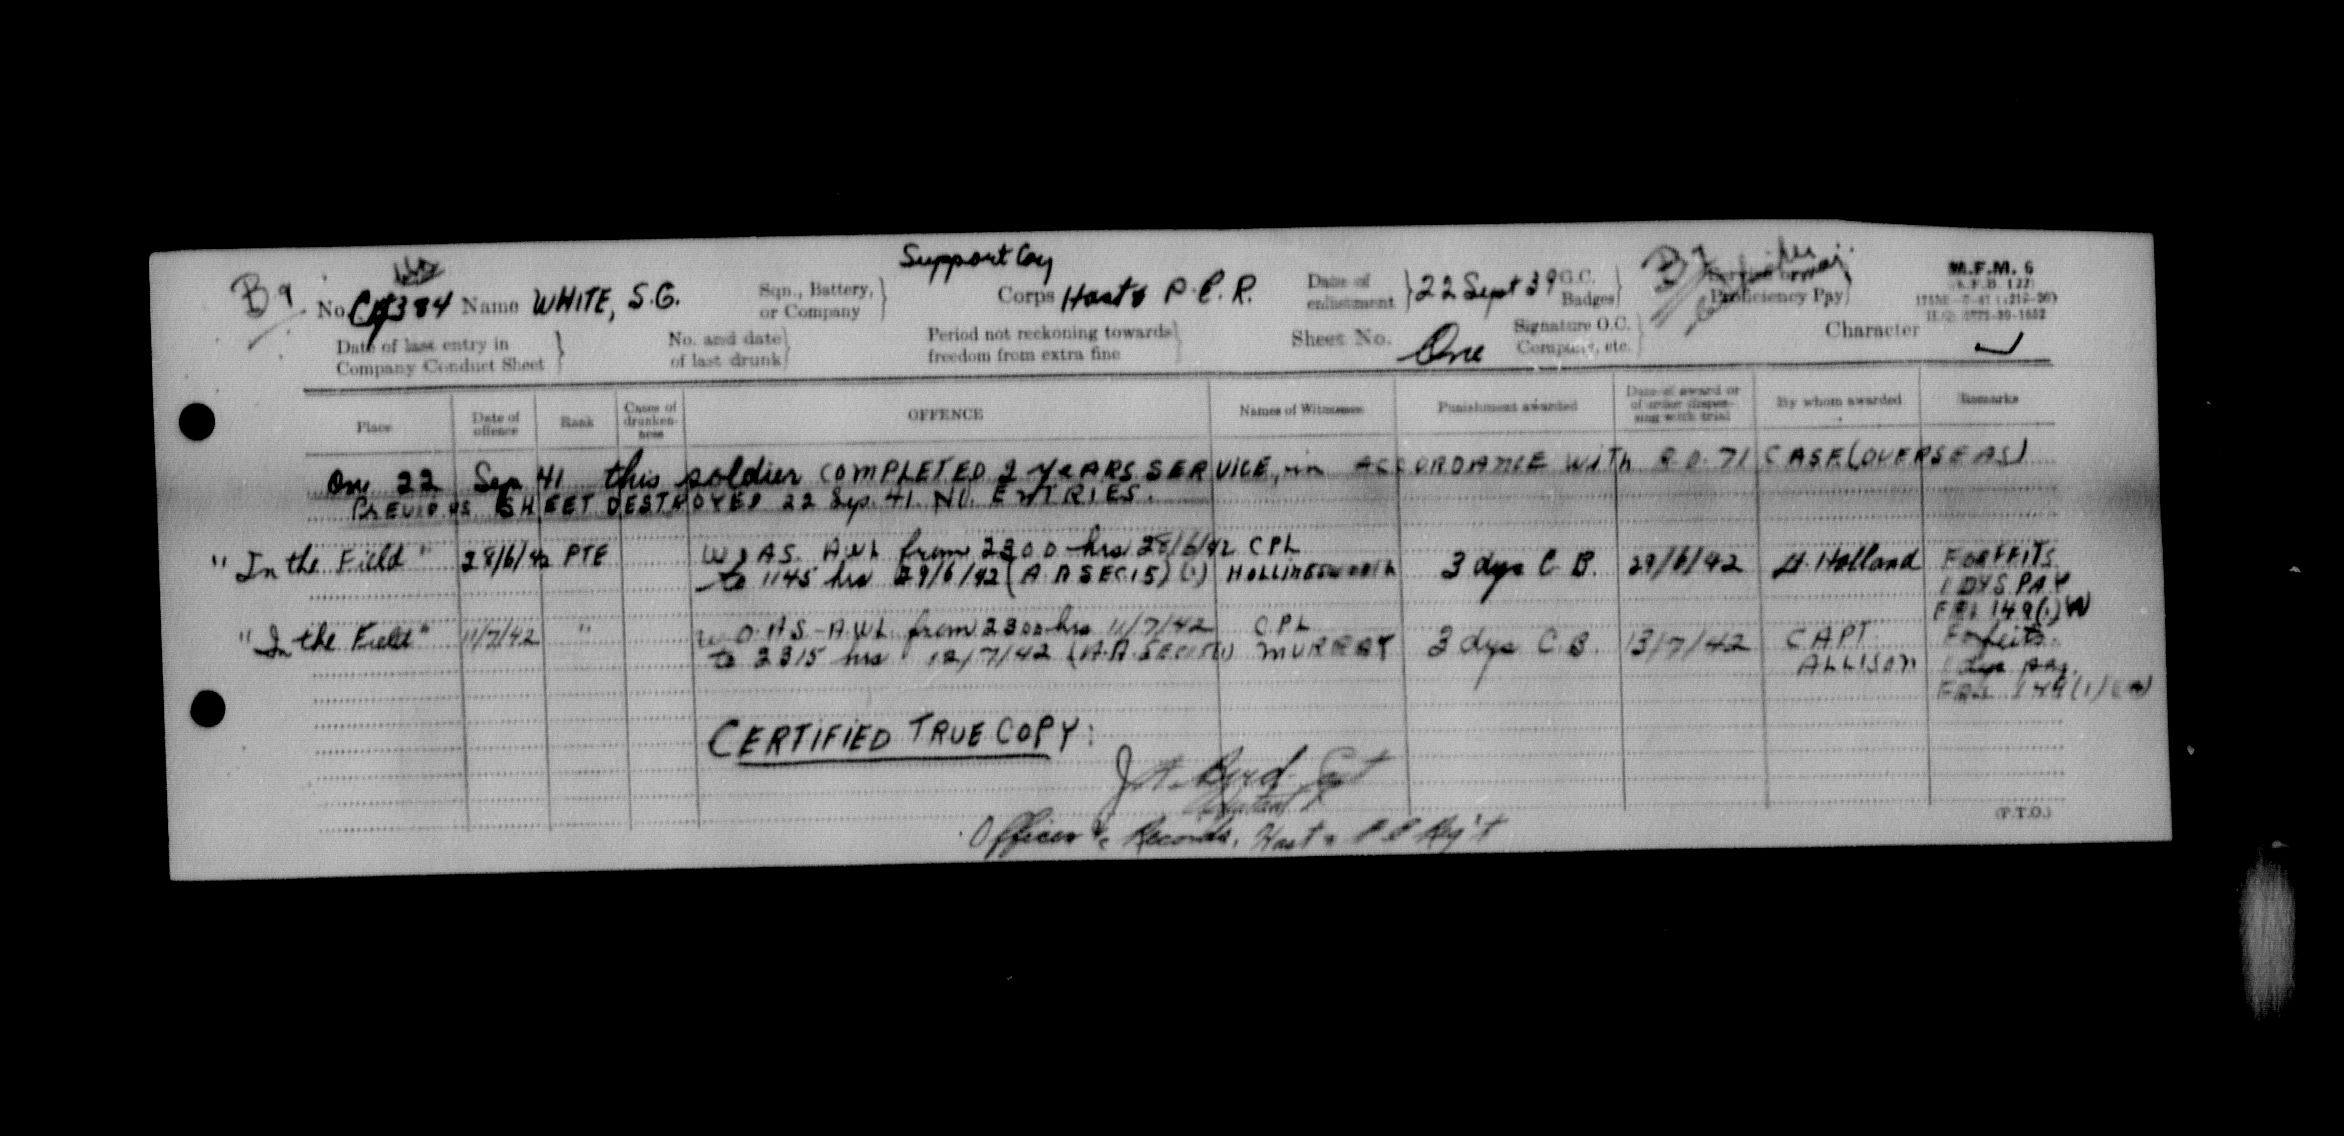 Support Coy
B9
No. C/4384 Name WHITE, S.G. Sqn., Battery, or Company Corps Hast & P.E.R. Date of enlistment 22 Sept 39 G.C. Badges Proficiency Pay
M.F.M. 6
(A.F.B. 122)
Date of last entry in Company Conduct Sheet No. and date of last drunk Period not reckoning towards freedom from extra fine Sheet No. One Signature O.C. Company, etc. Character
Place Date of offence Rank Cases of drunkenness OFFENCE Names of Witnesses Punishment awarded Date of award or of order dispensing with trial By whom awarded Remarks
One 22 Sep 41 this soldier COMPLETED 2 YEARS SERVICE, in ACCORDANCE WITH R.O. 71 CASF (OVERSEAS)
PREVIOUS SHEET DESTROYED 22 Sep. 41. NO. ENTRIES.
"In the Field" 28/6/42 PTE AS. AWL from 2300 hrs 28/6/42 CPL
to 1145 hrs 29/6/42 (A.A SEC 15) (1) HOLLINGSWORTH 3 dys C.B. 29/6/42 Lt. Holland FORFEITS
1 DYS PAY
FRI 149(1)W
"In the Field" 11/7/42 " W O. AS - AWL from 2300 hrs 11/7/42 CPL
to 2315 hrs 12/7/42 (A.A. SEC 15(1)) MURRAY 3 dys C.B. 13/7/42 CAPT. ALLISON Forfeits
1 dys pay.
FRI 149(1)
CERTIFIED TRUE COPY:
Byrd Capt
Adjutant
Officer i/c Records, Hast & P E Reg't
(P.T.O.)